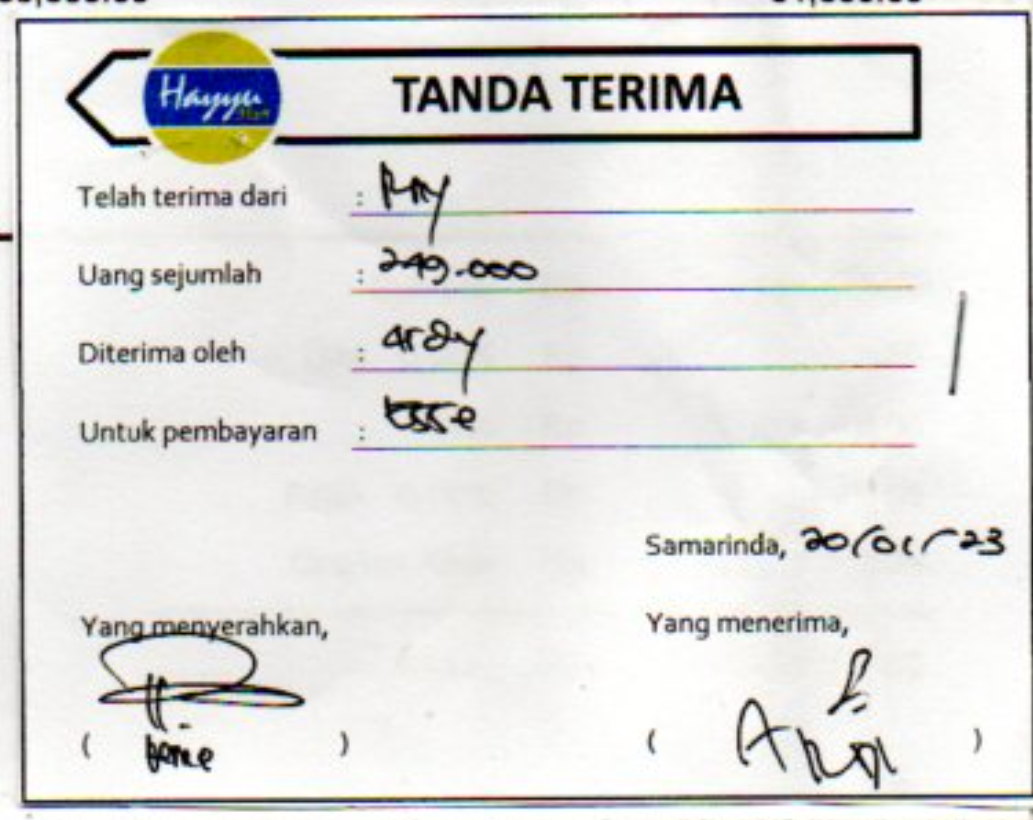 Hayyu
TANDA TERIMA
Telah terima dari :
Uang sejumlah : 249.000
Diterima oleh : Ardy
Untuk pembayaran :
Samarinda, 20/01/23
Yang menyerahkan,
Yang menerima,
( )
( )